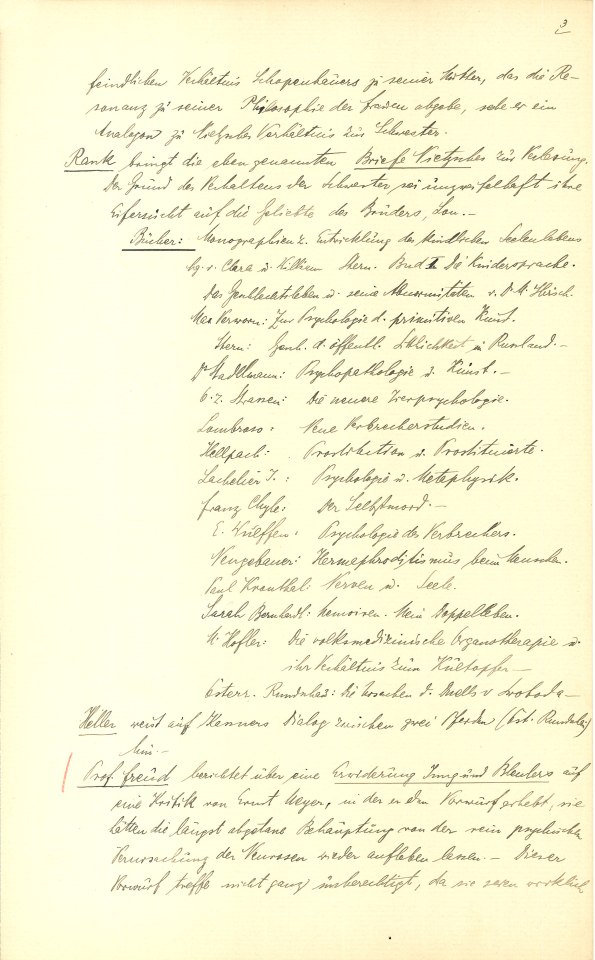 3
feindlichen Verhältnis Schopenhauers zu seiner Mutter, das die Re-
sonanz zu seiner Philosophie der Frauen abgebe, sehe er ein
Analogon zu Nietzsches Verhältnis zur Schwester.
Rank bringt die eben genannten Briefe Nietzsches zur Verlesung.
Der Grund des Verhaltens der Schwester sei unzweifelhaft ihre
Eifersucht auf die Geliebte des Bruders, Lou.-
Bücher: Monographien z. Entwicklung des kindlichen Seelenlebens
v. Clara u. William Stern. Band I Die Kindersprache.
Das Geschlechtsleben u. seine Abnormitäten v. Dr M. Hirsch.
Max Verworn: Zur Psychologie d. primitiven Kunst.
Stern: Gesch. d. öffentl. Sittlichkeit in Russland.-
Dr Stadelmann: Psychopathologie u. Kunst.-
Die neuere Tierpsychologie.
Lombroso: Neue Verbrecherstudien.
Hellpach: Prostitution u. Prostituierte.
Lachelier J.: Psychologie u. Metaphysik.
Franz Chyle: Der Selbstmord.-
E. Wulffen: Psychologie des Verbrechers.
Neugebauer: Hermephroditismus beim Menschen.
Paul Kronthal: Nerven u. Seele.
Sarah Bernhardt: Memoiren. Mein Doppelleben.
M. Höfler: Die volksmedizinische Organotherapie u.
ihr Verhältnis zum Kultopfer-
Österr. Rundschau: Die Ursachen d. Duells v Swoboda-
Heller weist auf Dialog zwischen zwei Pferden (Öst. Rundschau)
hin.-
Prof. Freud berichtet über eine Erwiderung Jung und Bleulers auf
eine Kritik von Ernst Meyer, in der er den Vorwurf erhebt, sie
hätten die längst abgetane Behauptung von der rein psychischen
Verursachung der Neurosen wieder aufleben lassen.- Dieser
Vorwurf treffe nicht ganz unberechtigt, da sie seien wirklich